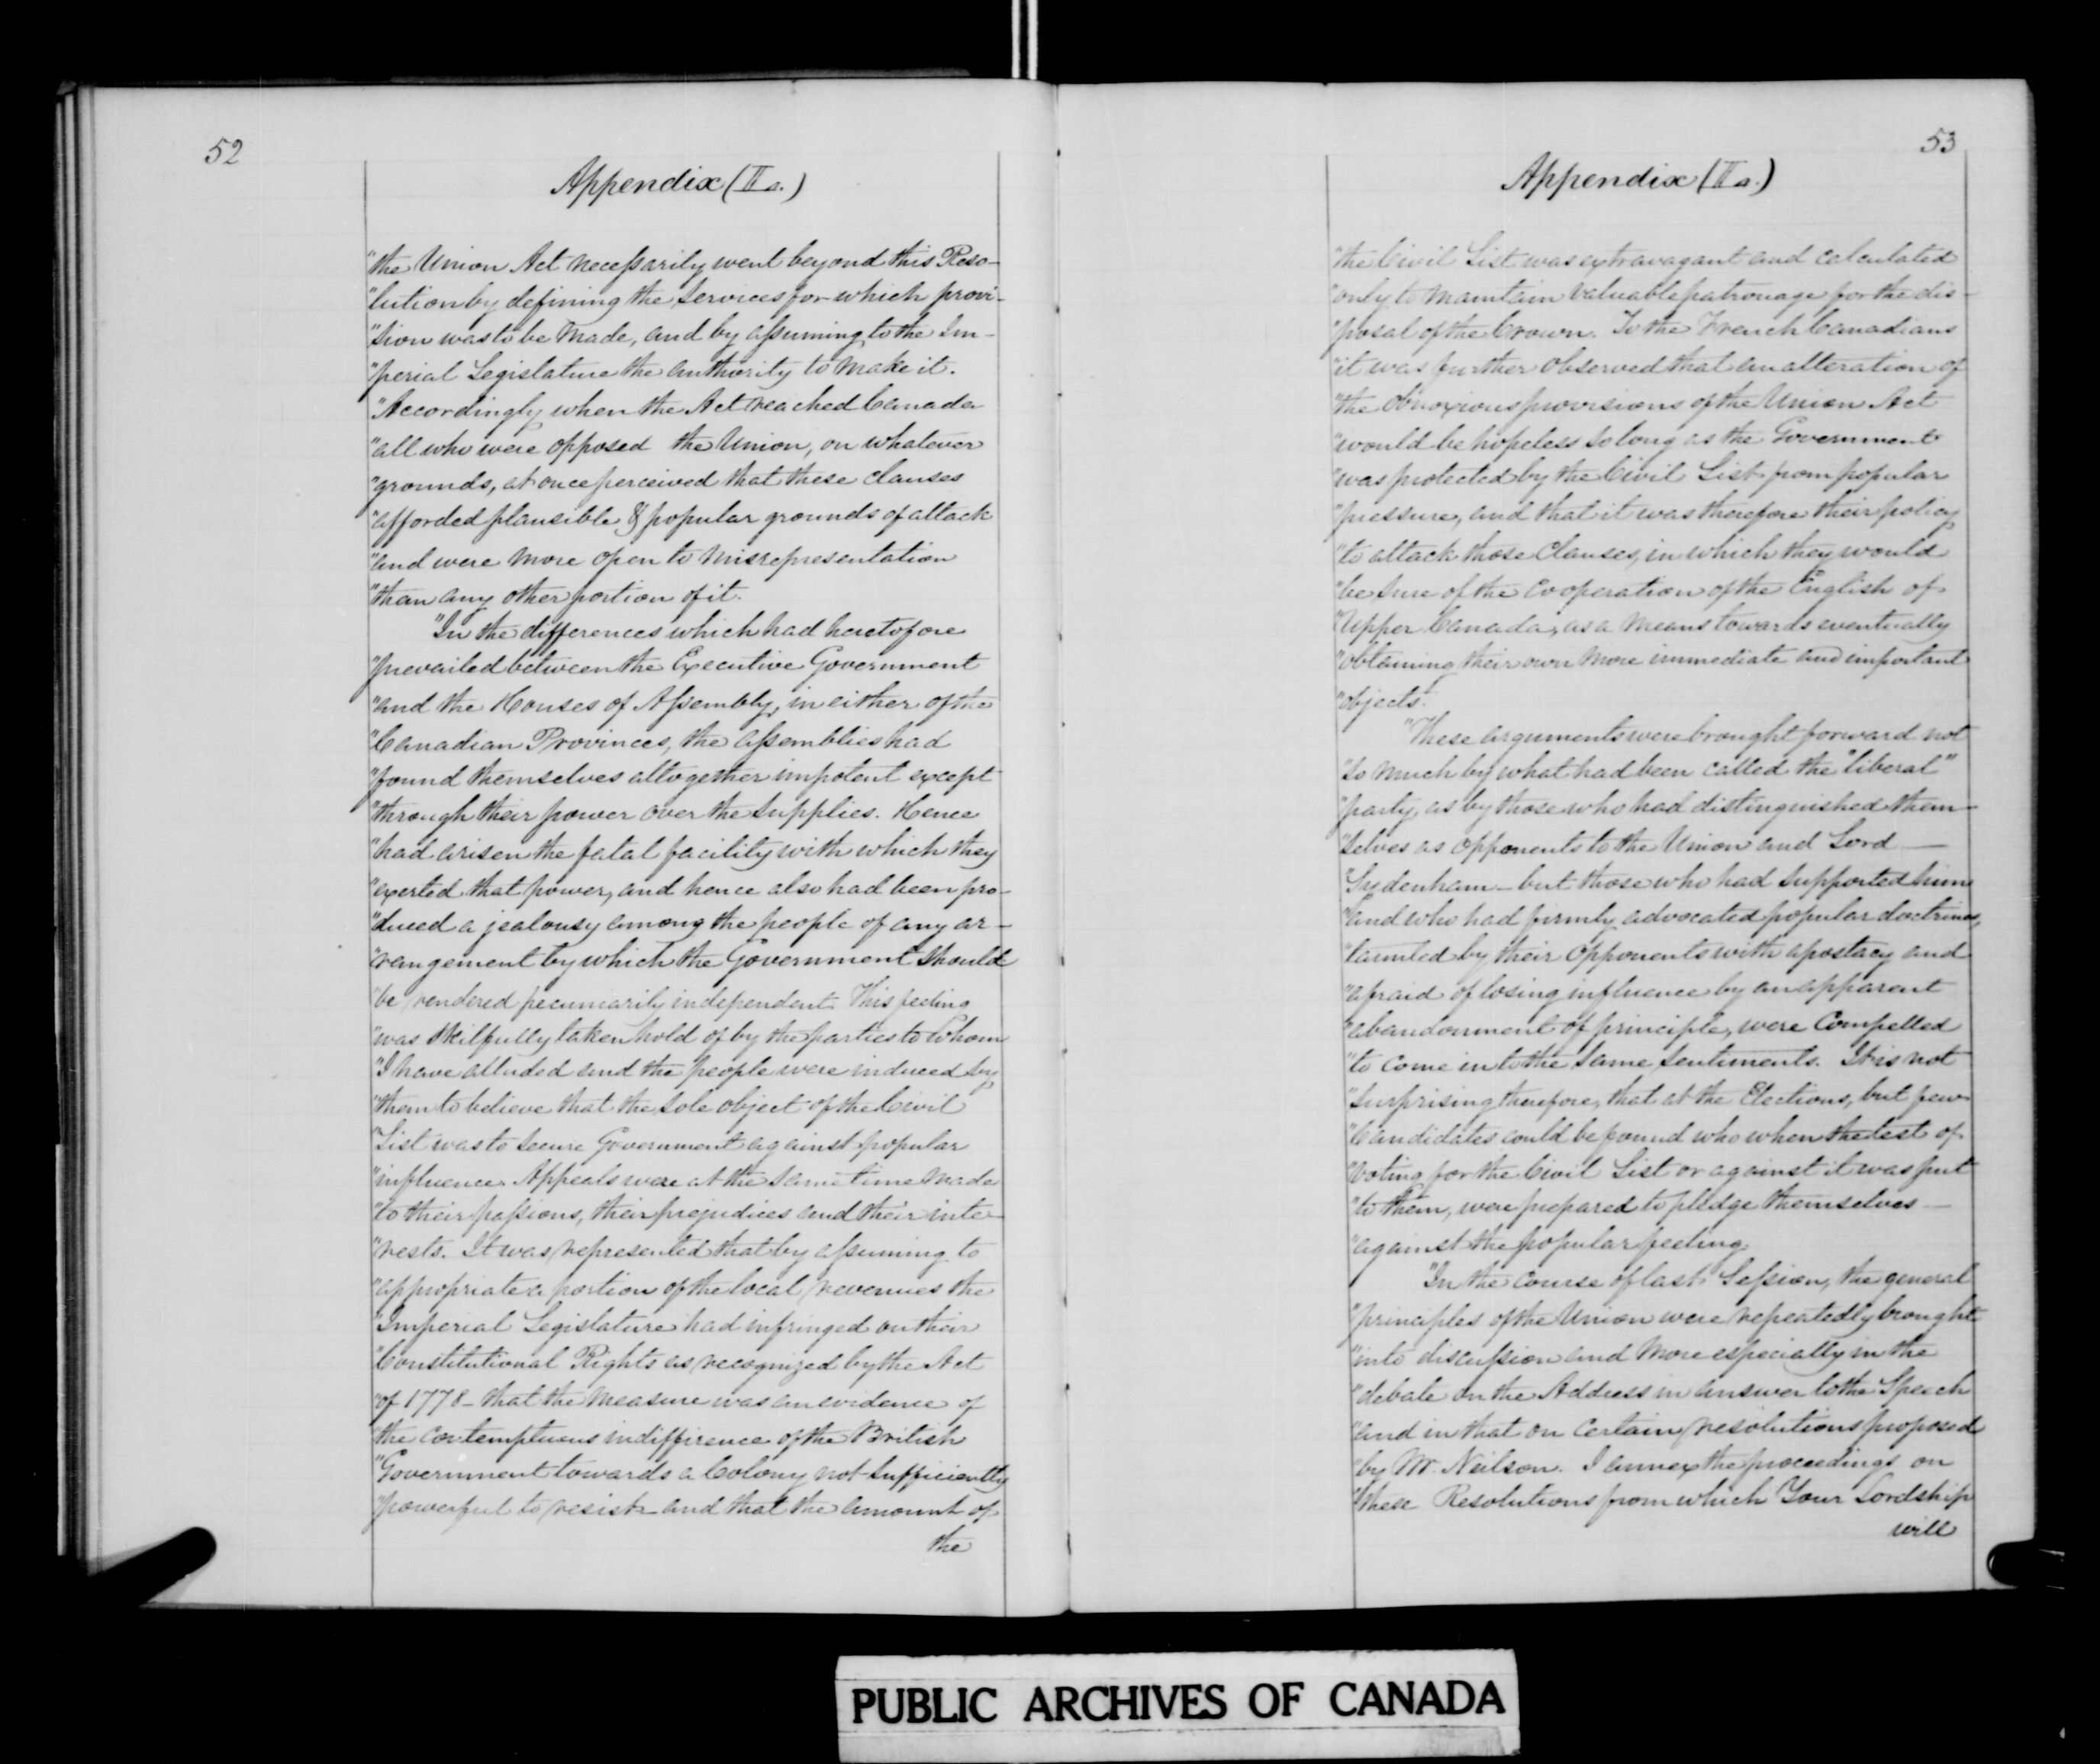 52
Appendix (II a.)
"the Union Act necessarily went beyond this Reso-
"lution by defining the services for which provi-
"sion was to be made, and by assuming to the Im-
"perial Legislature the authority to make it.
"Accordingly when the Act reached Canada
"all who were opposed the Union, on whatever
"grounds, at once perceived that these clauses
"afforded plausible & popular grounds of attack
"and were more open to misrepresentation
"than any other portion of it.
"In the differences which had heretofore
"prevailed between the Executive Government
"and the Houses of Assembly, in either of the
"Canadian Provinces, the Assemblies had
"found themselves altogether impotent except
"through their power over the supplies. Hence
"had arisen the fatal facility with which they
"exerted that power, and hence also had been pro-
"duced a jealousy among the people of any ar-
"rangement by which the Government should
"be rendered pecuniarily independent. This feeling
"was skilfully taken hold of by the parties to whom
"I have alluded and the people were induced by
"them to believe that the sole object of the Civil
"List was to secure Government against popular
"influence. Appeals were at the same time made
"to their passions, their prejudices and their inte-
"rests. It was represented that by assuming to
"appropriate a portion of the local revenues the
"Imperial Legislature had infringed on their
"Constitutional Rights as recognized by the Act
"of 1778 - that the measure was an evidence of
"the contemptuous indifference of the British
"Government towards a Colony not sufficiently
"powerful to resist - and that the amount of
the
53
Appendix (II a.)
"the Civil List was extravagant and calculated
"only to maintain valuable patronage for the dis-
"posal of the Crown. To the French Canadians
"it was further observed that an alteration of
"the obnoxious provisions of the Union Act
"would be hopeless so long as the Government
"was protected by the Civil List from popular
"pressure, and that it was therefore their policy
"to attack those Clauses, in which they would
"be sure of the cooperation of the English of
"Upper Canada, as a means towards eventually
"obtaining their own more immediate and important
"objects.
"These arguments were brought forward not
"so much by what had been called the "liberal"
"party, as by those who had distinguished them-
"selves as opponents to the Union and Lord —
"Sydenham - but those who had supported him
"and who had firmly advocated popular doctrines,
"taunted by their opponents with apostacy and
"afraid of losing influence by an apparent
"abandonment of principle, were compelled
"to come into the same sentiments. It is not
"surprising therefore, that at the Elections, but few
"Candidates could be found who when the test of
"voting for the Civil List or against it was put
"to them, were prepared to pledge themselves —
"against the popular feeling.
"In the course of last Session, the general
"principles of the Union were repeatedly brought
"into discussion and more especially in the
"debate on the Address in answer to the Speech
"and in that on certain resolutions proposed
"by Mr. Neilson. I annex the proceedings on
"these Resolutions from which Your Lordship
will
PUBLIC ARCHIVES OF CANADA